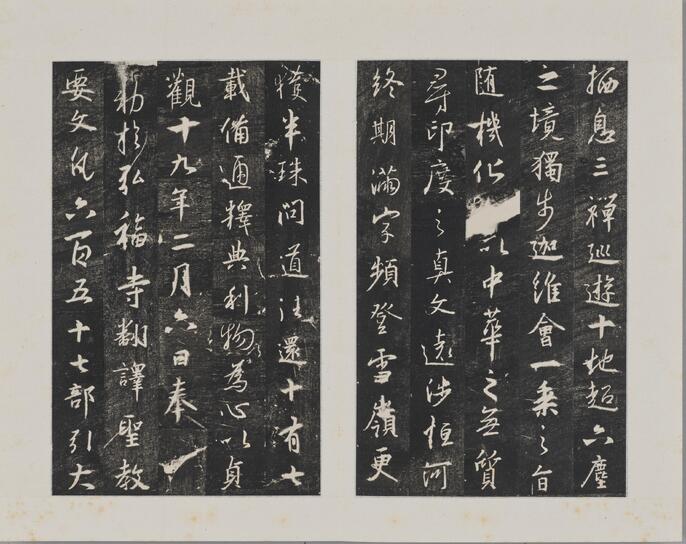 栖息三禅巡遊十地超六塵
之境獨步迦維會一乗之旨
随機化以中華之無質
尋印度之真文遠涉恒河
終期滿字頻登雪嶺更
獲半珠問道法還十有七
載備通釋典利物為心以貞
觀十九年二月六日奉
勅於弘福寺翻譯聖教
要文凡六百五十七部引大